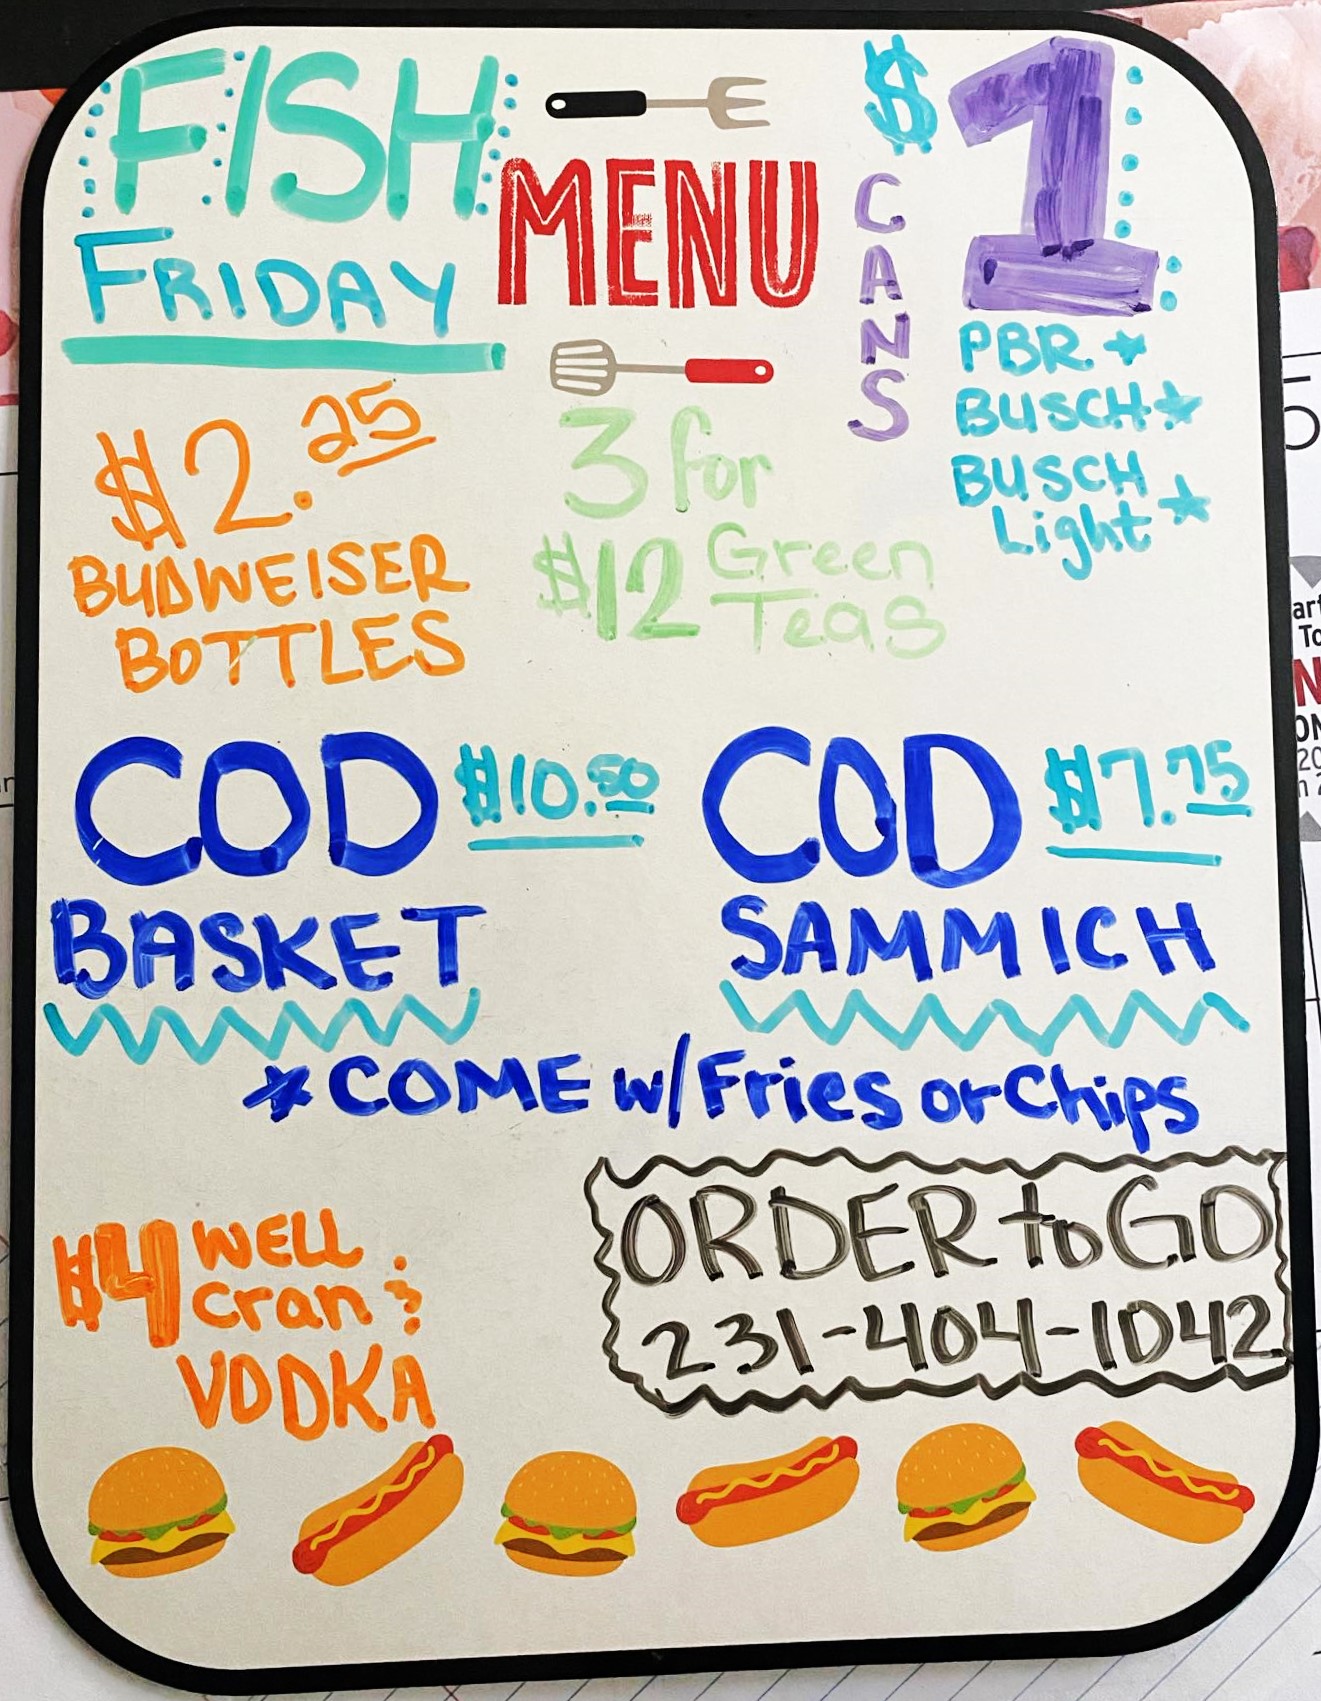 FISH
FRIDAY
MENU
$1
CANS
PBR
BUSCH
BUSCH
Light
$2.25
BUDWEISER
BOTTLES
3 for
$12 Green
Teas
COD $10.50
BASKET
COD $7.75
SAMMICH
*COME w/Fries or Chips
$4 WELL
Cran &
VODKA
ORDER to GO
231-404-1042
5